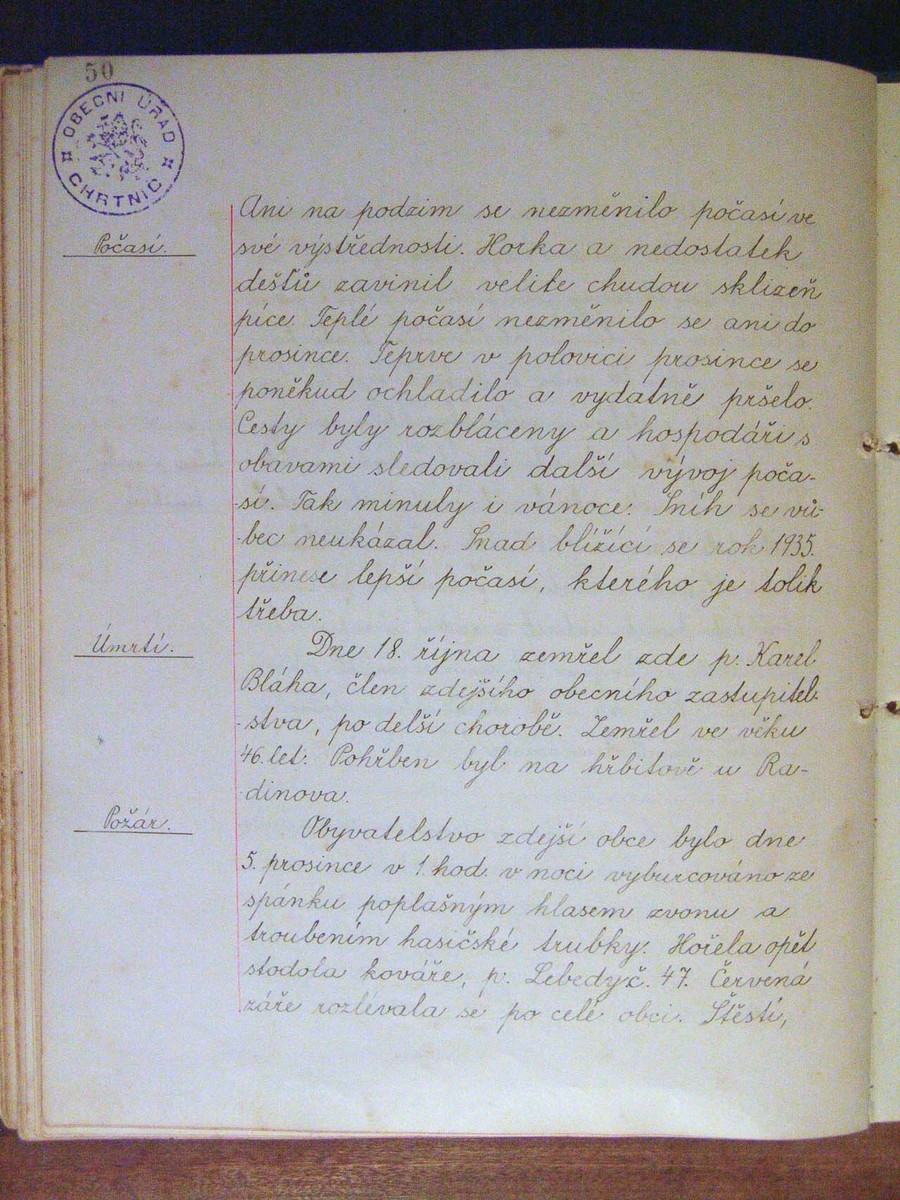 50
OBECNÍ ÚŘAD
CHRTNÍČ
Počasí.
Ani na podzim se nezměnilo počasí ve
své výstřednosti. Horka a nedostatek
dešťů zavinil velite chudou sklizeň
píce. Teplé počasí nezměnilo se ani do
prosince. Teprve v polovici prosince se
poněkud ochladilo a vydatně pršelo.
Cesty byly rozbláceny a hospodáři s
obavami sledovali další vývoj poča-
-sí. Tak minuly i vánoce. Sníh se vů-
-bec neukázal. Snad blížící se rok 1935.
přinese lepší počasí, kterého je tolik
třeba.
Úmrtí.
Dne 18. října zemřel zde p. Karel
Bláha, člen zdejšího obecního zastupitel-
-stva, po delší chorobě. Zemřel ve věku
46. let. Pohřben byl na hřbitově u Ra-
-dinova.
Požár.
Obyvatelstvo zdejší obce bylo dne
5. prosince v 1. hod. v noci vyburcováno ze
spánku poplašným hlasem zvonu a
troubením hasičské trubky. Hořela opět
stodola kováře, p. Lebedy č. 47. Červená
záře rozlévala se po celé obci. Štěstí,